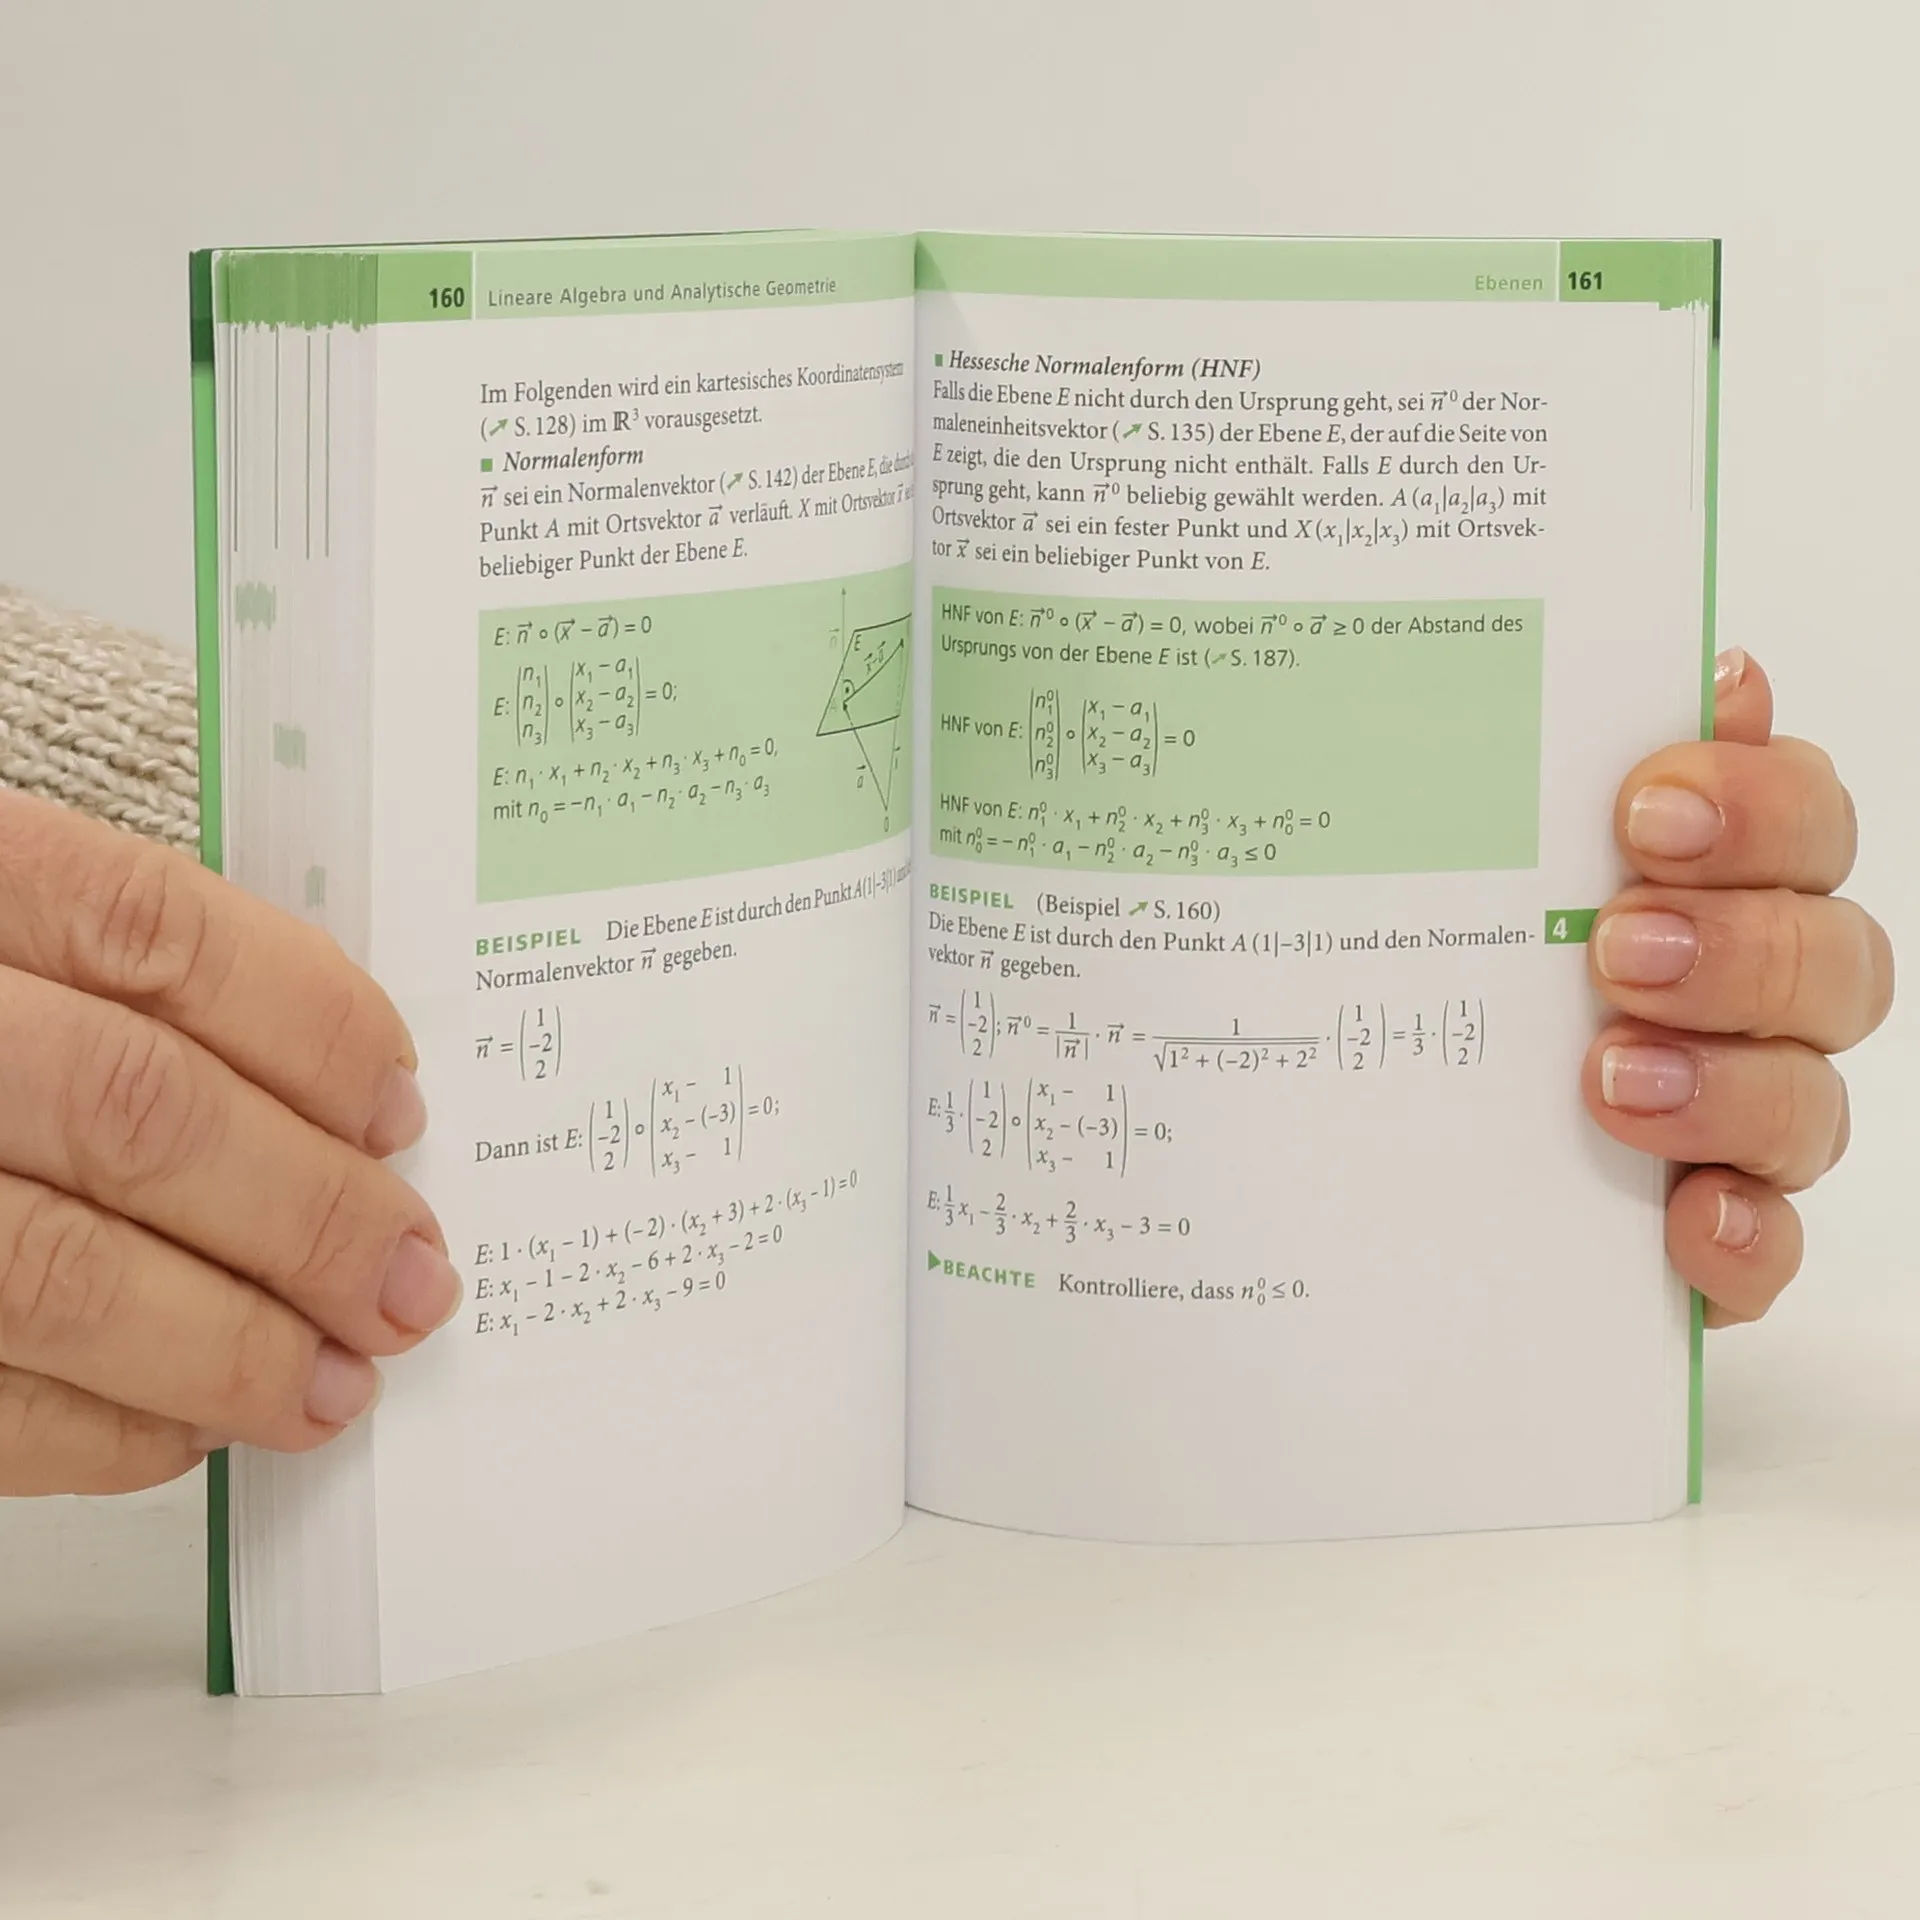 160 Lineare Algebra und Analytische Geometrie
Im Folgenden wird ein kartesisches Koordinatensystem
(↗ S. 128) im ℝ³ vorausgesetzt.
■ Normalenform
n⃗ sei ein Normalenvektor (↗ S. 142) der Ebene E, die
Punkt A mit Ortsvektor a⃗ verläuft. X mit Ortsvektor x⃗
beliebiger Punkt der Ebene E.
E: n⃗ ∘ (x⃗ − a⃗) = 0
E: (n₁ n₂ n₃) ∘ (x₁ − a₁ x₂ − a₂ x₃ − a₃) = 0;
E: n₁ · x₁ + n₂ · x₂ + n₃ · x₃ + n₀ = 0,
mit n₀ = −n₁ · a₁ − n₂ · a₂ − n₃ · a₃
n⃗
E
x⃗−a⃗
A
a⃗
0
BEISPIEL Die Ebene E ist durch den Punkt A(1|−3|1)
Normalenvektor n⃗ gegeben.
n⃗ = (1 −2 2)
Dann ist E: (1 −2 2) ∘ (x₁ − 1 x₂ − (−3) x₃ − 1) = 0;
E: 1 · (x₁ − 1) + (−2) · (x₂ + 3) + 2 · (x₃ − 1) = 0
E: x₁ − 1 − 2 · x₂ − 6 + 2 · x₃ − 2 = 0
E: x₁ − 2 · x₂ + 2 · x₃ − 9 = 0
Ebenen 161
■ Hessesche Normalenform (HNF)
Falls die Ebene E nicht durch den Ursprung geht, sei n⃗⁰ der Nor-
maleneinheitsvektor (↗ S. 135) der Ebene E, der auf die Seite von
E zeigt, die den Ursprung nicht enthält. Falls E durch den Ur-
sprung geht, kann n⃗⁰ beliebig gewählt werden. A (a₁|a₂|a₃) mit
Ortsvektor a⃗ sei ein fester Punkt und X (x₁|x₂|x₃) mit Ortsvek-
tor x⃗ sei ein beliebiger Punkt von E.
HNF von E: n⃗⁰ ∘ (x⃗ − a⃗) = 0, wobei n⃗⁰ ∘ a⃗ ≥ 0 der Abstand des
Ursprungs von der Ebene E ist (↗ S. 187).
HNF von E: (n₁⁰ n₂⁰ n₃⁰) ∘ (x₁ − a₁ x₂ − a₂ x₃ − a₃) = 0
HNF von E: n₁⁰ · x₁ + n₂⁰ · x₂ + n₃⁰ · x₃ + n₀⁰ = 0
mit n₀⁰ = − n₁⁰ · a₁ − n₂⁰ · a₂ − n₃⁰ · a₃ ≤ 0
BEISPIEL (Beispiel ↗ S. 160)
Die Ebene E ist durch den Punkt A (1|−3|1) und den Normalen-
vektor n⃗ gegeben.
4
n⃗ = (1 −2 2); n⃗⁰ = 1/|n⃗| · n⃗ = 1/√(1² + (−2)² + 2²) · (1 −2 2) = 1/3 · (1 −2 2)
E: 1/3 · (1 −2 2) ∘ (x₁ − 1 x₂ − (−3) x₃ − 1) = 0;
E: 1/3 x₁ − 2/3 · x₂ + 2/3 · x₃ − 3 = 0
▶BEACHTE Kontrolliere, dass n₀⁰ ≤ 0.